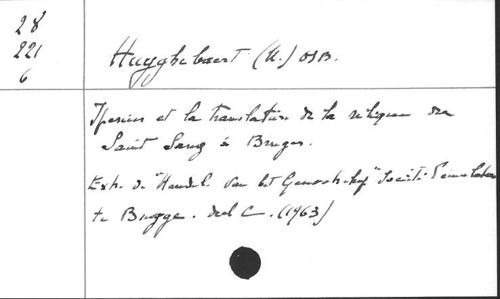 28
221
6
Huyghebaert (N.) OSB.
Iperius et la translation de la relique du
Saint Sang à Bruges.
Extr. de "Handel. van het Genootschap" Société d'émulation
te Brugge. deel C. (1963)